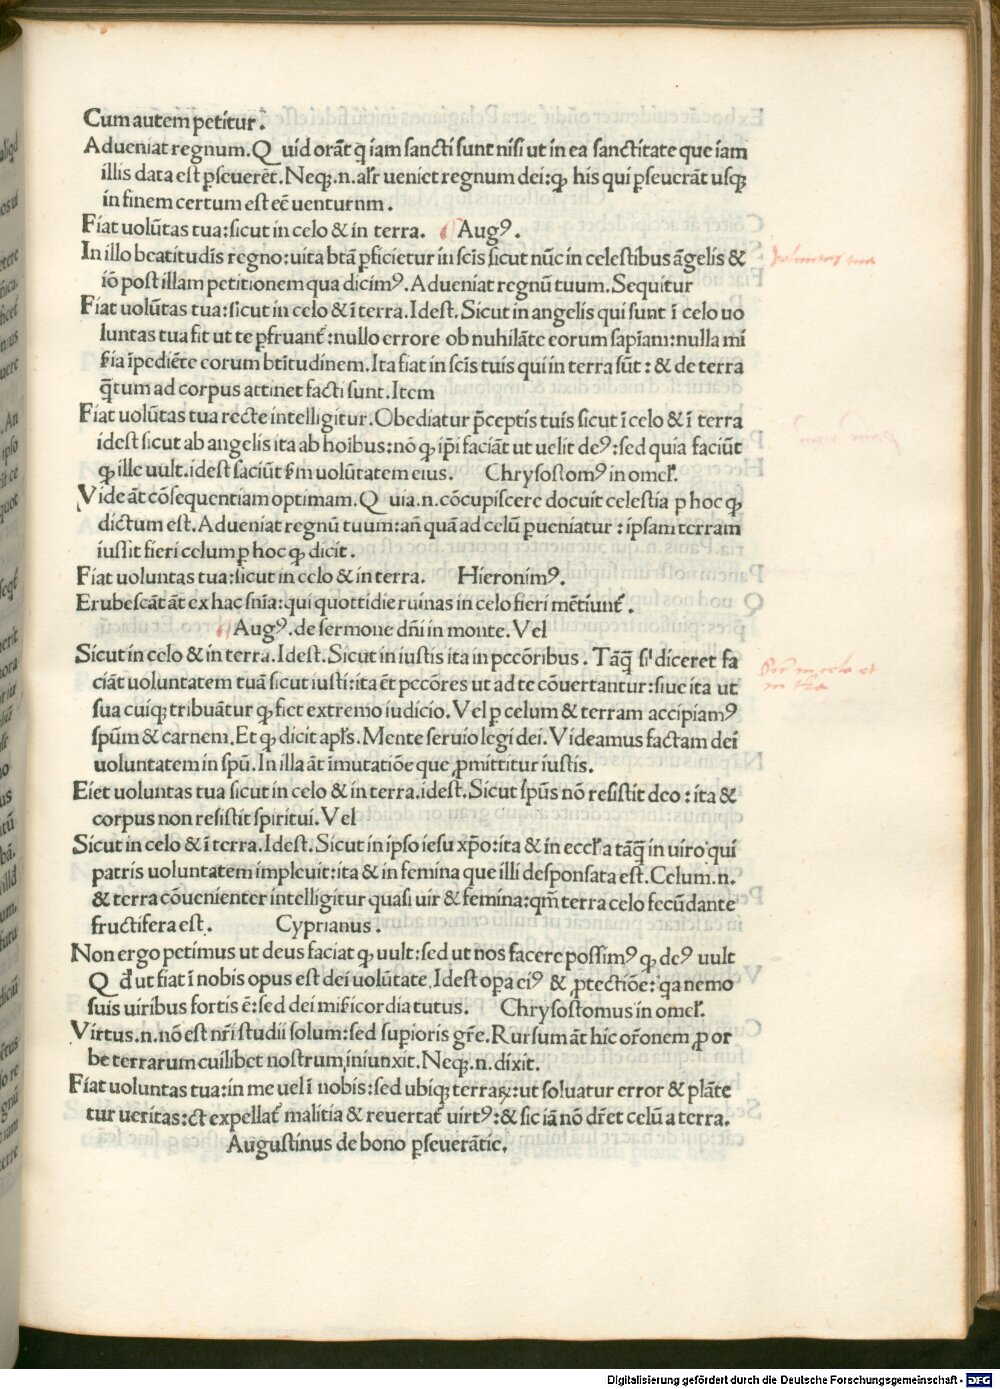 Cum autem petitur.
Adueniat regnum. Q uid orāt ꝙ iam sancti sunt nisi ut in ea sanctitate que iam
illis data est ꝑseuerēt. Neqꝫ .n. alr̄ ueniet regnum dei: ꝙ his qui ꝑseuerāt usqꝫ
in finem certum est eē uenturnm.
Fiat uolūtas tua: sicut in celo & in terra. Augꝰ.
In illo beatitudīs regno: uita btā ꝑficietur in scīs sicut nūc in celestibus āgelis &
iō post illam petitionem qua dicimꝰ. Adueniat regnū tuum. Sequitur
Fiat uolūtas tua: sicut in celo & ī terra. Idest. Sicut in angelis qui sunt ī celo uo
luntas tua fit ut te ꝑfruant̄: nullo errore ob nuhilāte eorum sapīam: nulla mi
ẜia īpediēte eorum bt̄itudinem. Ita fiat in scīs tuis qui in terra sūt: & de terra
q̄tum ad corpus attinet facti sunt. Item
Fiat uolūtas tua recte intelligitur. Obediatur p̄ceptis tuis sicut ī celo & ī terra
idest sicut ab angelis ita ab hoībus: nō ꝙ ip̄i faciāt ut uelit deꝰ: sed quia faciūt
ꝙ ille uult. idest faciūt ẜm uolūtatem eius. Chrysostomꝰ in omel̄.
Vide āt cōsequentiam optimam. Q uia .n. cōcupiscere docuit celestia ꝑ hoc ꝙ
dictum est. Adueniat regnū tuum: an̄ quā ad celū ꝑueniatur: ipsam terram
iussit fieri celum ꝑ hoc ꝙ dicit.
Fiat uoluntas tua: sicut in celo & in terra. Hieronimꝰ.
Erubescāt āt ex hac sn̄ia: qui quottidie ruinas in celo fieri mētiunt̄.
Augꝰ. de sermone dn̄i in monte. Vel
Sicut in celo & in terra. Idest. Sicut in iustis ita in peccōribus. Tāq̄ si diceret fa
ciāt uoluntatem tuā sicut iusti: ita et̄ peccōres ut ad te cōuertantur: siue ita ut
sua cuiqꝫ tribuātur ꝙ fiet extremo iudicio. Vel ꝑ celum & terram accipiamꝰ
spūm & carnem. Et ꝙ dicit apl̄s. Mente seruio legi dei. Videamus factam dei
uoluntatem in spū. In illa āt īmutatiōe que ꝓmittitur iustis.
Eiet uoluntas tua sicut in celo & in terra. idest. Sicut spūs nō resistit deo: ita &
corpus non resistit spiritui. Vel
Sicut in celo & ī terra. Idest. Sicut in ipso iesu xp̄o: ita & in eccl̄ia tāq̄ in uiro qui
patris uoluntatem impleuit: ita & in femina que illi desponsata est. Celum .n.
& terra cōuenienter intelligitur quasi uir & femina: qm̄ terra celo fecūdante
fructifera est. Cyprianus.
Non ergo petimus ut deus faciat ꝙ uult: sed ut nos facere possimꝰ ꝙ deꝰ uult
Q đ ut fiat ī nobis opus est dei uolūtate. Idest opa eiꝰ & ꝓtectiōe: qa nemo
suis uiribus fortis ē: sed dei miẜicordia tutus. Chrysostomus in omel̄.
Virtus .n. nō est nr̄i studii solum: sed supioris gr̄e. Rursum āt hic or̄onem ꝓ or
be terrarum cuilibet nostrum iniunxit. Neqꝫ .n. dixit.
Fiat uoluntas tua: in me uel ī nobis: sed ubiqꝫ terraꝝ: ut soluatur error & plāte
tur ueritas: et expellat̄ malitia & reuertat̄ uirtꝰ: & sic iā nō dr̄et celū a terra.
Augustinus de bono ꝑseuerātie.
voluntas tua
Sic in celo et
in terra
Digitalisierung gefördert durch die Deutsche Forschungsgemeinschaft - DFG